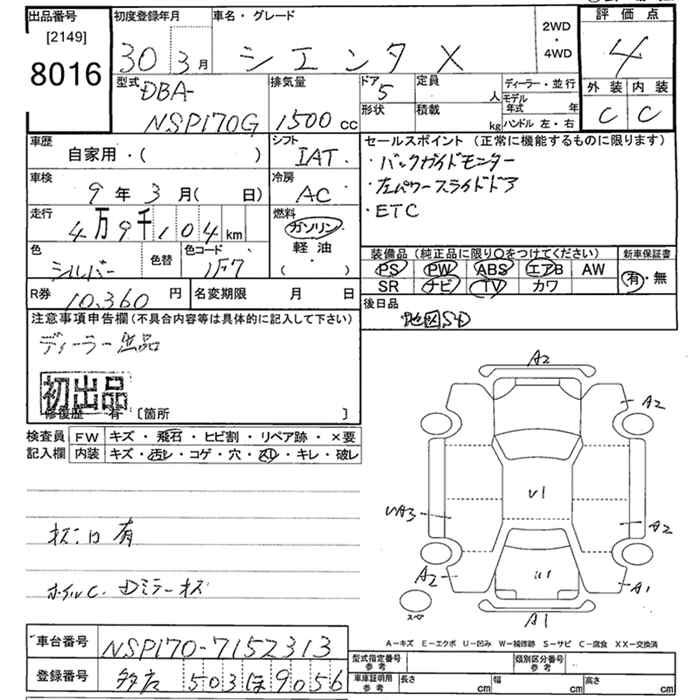 出品番号 初度登録年月 車名・グレード 評価点
[2149]
8016
30 3月 シエンタ X 2WD・4WD 4
型式 排気量 ドア 定員 ディーラー・並行 外装 内装
DBA- 5 人 モデル年式 年
NSP170G 1500cc 形状 積載 kg ハンドル 左・右 C C
車歴 自家用・( ) シフト IAT セールスポイント(正常に機能するものに限ります)
・バックガイドモニター
車検 9年3月( 日) 冷房 AC ・左パワースライドドア
・ETC
走行 4万9千104km 燃料 ガソリン・軽油・( )
色 シルバー 色替 色コード 1F7 装備品(純正品に限り○をつけてください) 新車保証書
PS PW ABS エアB AW 有・無
SR ナビ TV カワ
R券 10,360円 名変期限 月 日 後日品
地図SD
注意事項申告欄(不具合内容等は具体的に記入して下さい)
ディーラー出品
初出品
修復歴 有 [箇所 ]
検査員 FW キズ・飛石・ヒビ割・リペア跡・×要
記入欄 内装 キズ・汚レ・コゲ・穴・スレ・キレ・破レ
A2
A2
U1
A2
A2
U1
A1
A1
スペア
有
ホイルC. Dミラーキズ
A-キズ E-エクボ U-凹み W-補修跡 S-サビ C-腐食 XX-交換済
車台番号 NSP170-7152313
登録番号 503 ほ 9056
型式指定番号 参考 類別区分番号 参考
車庫証明用 参考 長さ cm 幅 cm 高さ cm